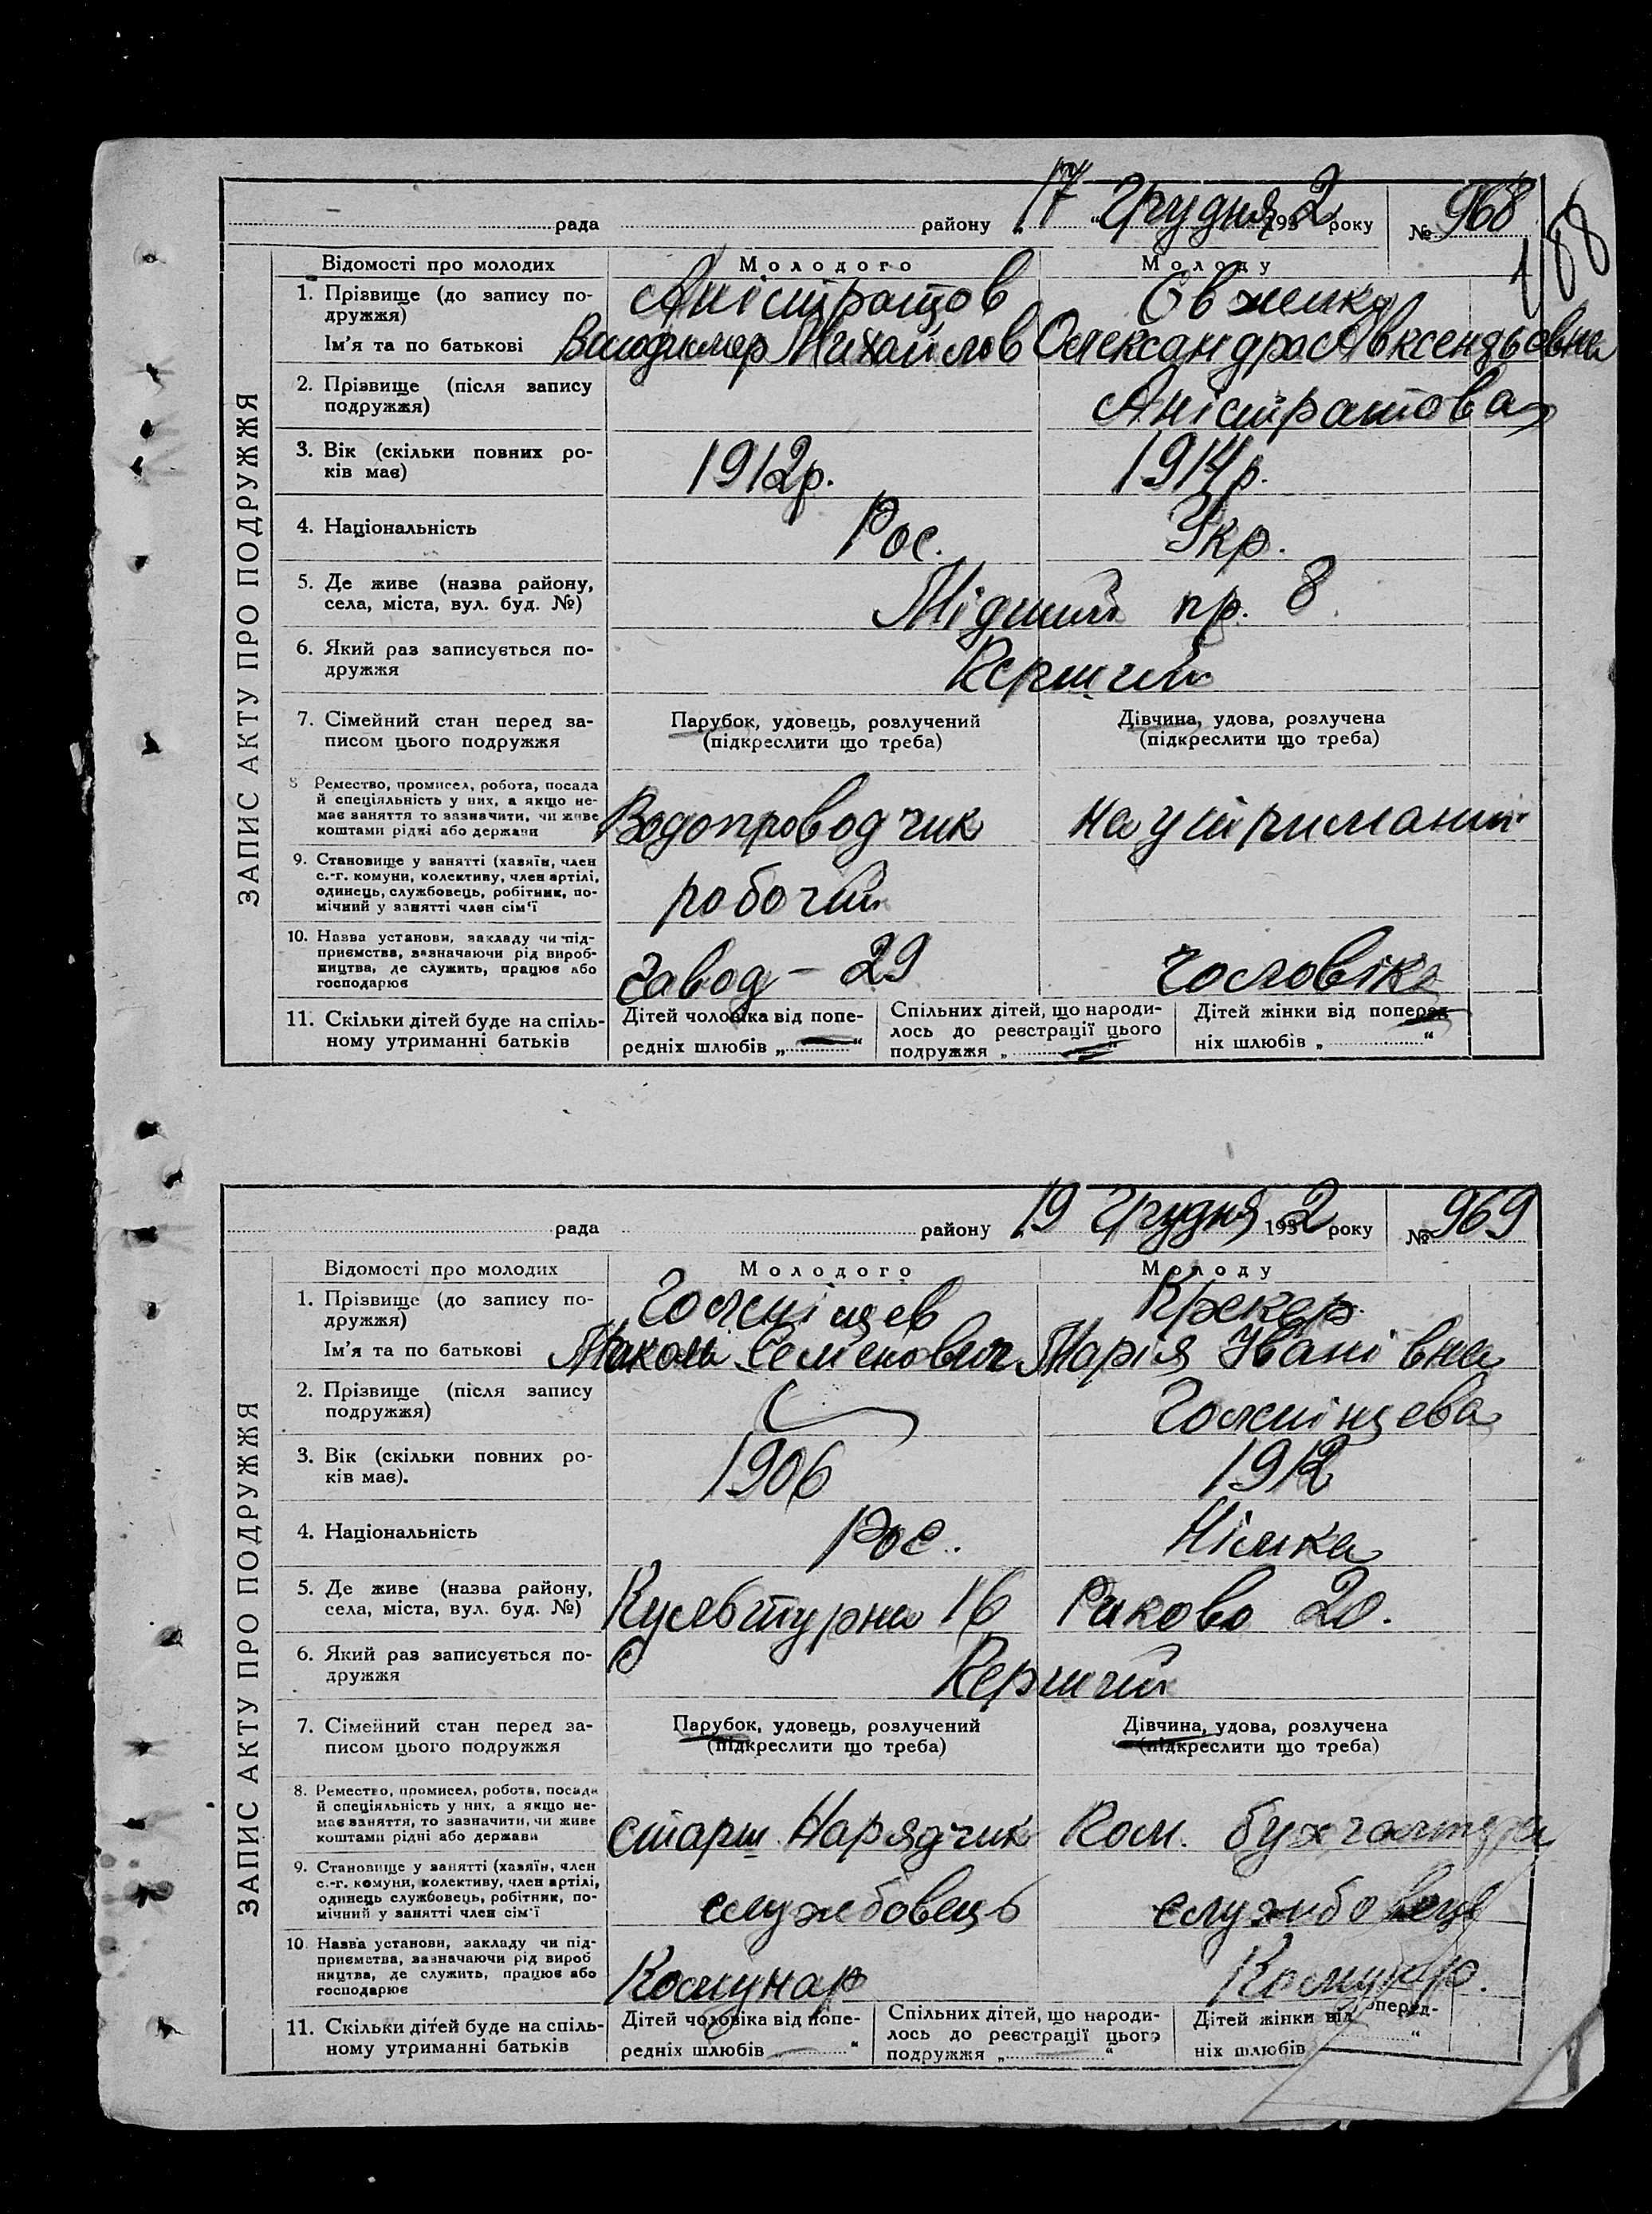 188
17 Грудня 1932 року № 968
рада району
Відомості про молодих Молодого Молоду
1. Прізвище (до запису по- Аністратов
дружжя)
Ім'я та по батькові Володимер Михайлов Олександра Авксендьевна
2. Прізвище (після запису
подружжя) Аністратова
3. Вік (скільки повних ро- 1912р. 1914р.
ків має)
4. Національність Рос. Укр.
5. Де живе (назва району,
села, міста, вул. буд. №) Мідний пр. 8
6. Який раз записується по- Перший
дружжя
7. Сімейний стан перед за- Парубок, удовець, розлучений Дівчина, удова, розлучена
писом цього подружжя (підкреслити що треба) (підкреслити що треба)
8 Ремество, промисел, робота, посада
й спеціяльність у них, а якщо не-
має заняття то зазначити, чи живе Водопроводчик на утриманні
коштами рідні або держави
9. Становище у занятті (хазяїн, член
с.-г. комуни, колективу, член артілі,
одинець, службовець, робітник, по- робочий
мічний у занятті член сім'ї
10. Назва установи, закладу чи під-
приємства, зазначаючи рід вироб-
ництва, де служить, працює або завод - 29 Чоловіка
господарює
11. Скільки дітей буде на спіль- Дітей чоловіка від попе- Спільних дітей, що народи- Дітей жінки від поперед-
ному утриманні батьків редніх шлюбів „ — “ лось до реєстрації цього ніх шлюбів „ “
подружжя „ — “
ЗАПИС АКТУ ПРО ПОДРУЖЖЯ
19 Грудня 1932 року № 969
рада району
Відомості про молодих Молодого Молоду
1. Прізвище (до запису по- Крекер
дружжя)
Ім'я та по батькові Микола Семенович Марія Іванівна
2. Прізвище (після запису
подружжя)
3. Вік (скільки повних ро- 1906 1912
ків має).
4. Національність Рос. Німка
5. Де живе (назва району,
села, міста, вул. буд. №) Культурна 16 Раково 20.
6. Який раз записується по- Перший
дружжя
7. Сімейний стан перед за- Парубок, удовець, розлучений Дівчина, удова, розлучена
писом цього подружжя (підкреслити що треба) (підкреслити що треба)
8. Ремество, промисел, робота, посада
й спеціяльність у них, а якщо не-
має заняття, то зазначити, чи живе старш. Нарядчик Ком. бухгалтера
коштами рідні або держави
9. Становище у занятті (хазяїн, член
с.-г. комуни, колективу, член артілі,
одинець службовець, робітник, по- службовець службовець
мічний у занятті член сім'ї
10. Назва установи, закладу чи під-
приємства, зазначаючи рід вироб
ництва, де служить, працює або Комунар Комунар.
господарює
11. Скільки дітей буде на спіль- Дітей чоловіка від попе- Спільних дітей, що народи- Дітей жінки від поперед-
ному утриманні батьків редніх шлюбів — “ лось до реєстрації цього ніх шлюбів “
подружжя „ “
ЗАПИС АКТУ ПРО ПОДРУЖЖЯ